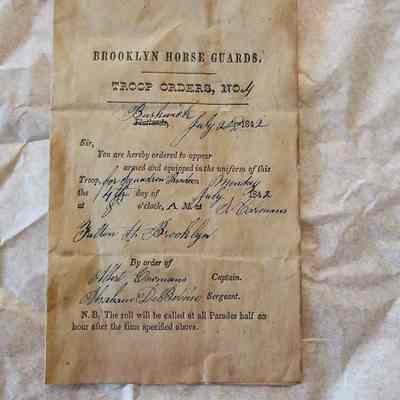 BROOKLYN HORSE GUARDS.
TROOP ORDERS, NO. 4
Bushwick
Flatlands, July 1842
Sir,
You are hereby ordered to appear
armed and equipped in the uniform of this
Troop, for Squadron Monday
the 4th day of July 1842
at 8 o'clock, A M. at
Fulton St. Brooklyn
By order of
Captain.
Abraham Sergeant.
N. B. The roll will be called at all Parades half an
hour after the time specified above.